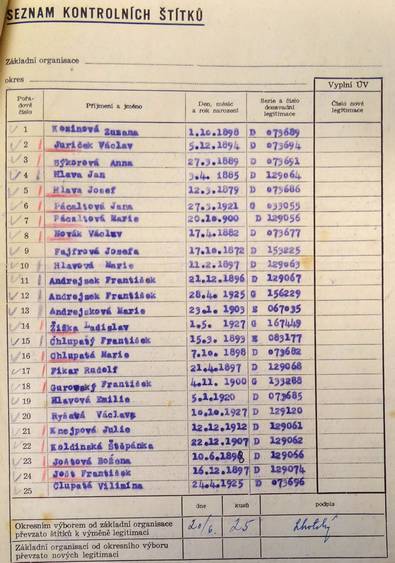 SEZNAM KONTROLNÍCH ŠTÍTKŮ
Základní organisace
okres
Vyplní ÚV
Pořadové číslo Příjmení a jméno Den, měsíc a rok narození Serie a číslo dosavadní legitimace Číslo nové legitimace
1 Kozinová Zuzana 1.10.1898 D 073689
2 Juriček Václav 5.12.1894 D 073694
3 Sýkorová Anna 27.3.1889 D 073691
4 Hlava Jan 3.4. 1885 D 129064
5 Hlava Josef 12.3.1879 D 073686
6 Pácaltová Jana 27.3.1921 G 033055
7 Pácaltová Marie 20.10.900 D 129056
8 Novák Václav 17.4.1882 D 073677
9 Fajfrová Josefa 17.10.1872 D 153225
10 Hlavová Marie 11.2.1897 D 129063
11 Andrejsek František 21.12.1896 D 129067
12 Andrejsek František 28.4. 1925 G 156229
13 Andrejsková Marie 23.1. 1903 E 067035
14 Žižka Ladislav 1.5. 1927 G 167449
15 Chlupatý František 15.3. 1893 E 083177
16 Chlupatá Marie 7.10. 1898 D 073682
17 Fikar Rudolf 21.4.1897 D 129068
18 Gurovský František 4.11. 1900 G 133288
19 Hlavová Emilie 5.1.1920 D 073685
20 Ryšavá Václava 10.10.1927 D 129120
21 Knejpová Julie 12.12.1912 D 129061
22 Koldinská Štěpánka 22.12.1907 D 129062
23 Joštová Božena 10.6.1898 D 129066
24 Jošt František 16.12.1897 D 129074
25 Clupatá Vilimína 24.4.1925 D 073696
dne kusů podpis
Okresním výborem od základní organisace převzato štítků k výměně legitimací 20/6. 25
Základní organisací od okresního výboru převzato nových legitimací